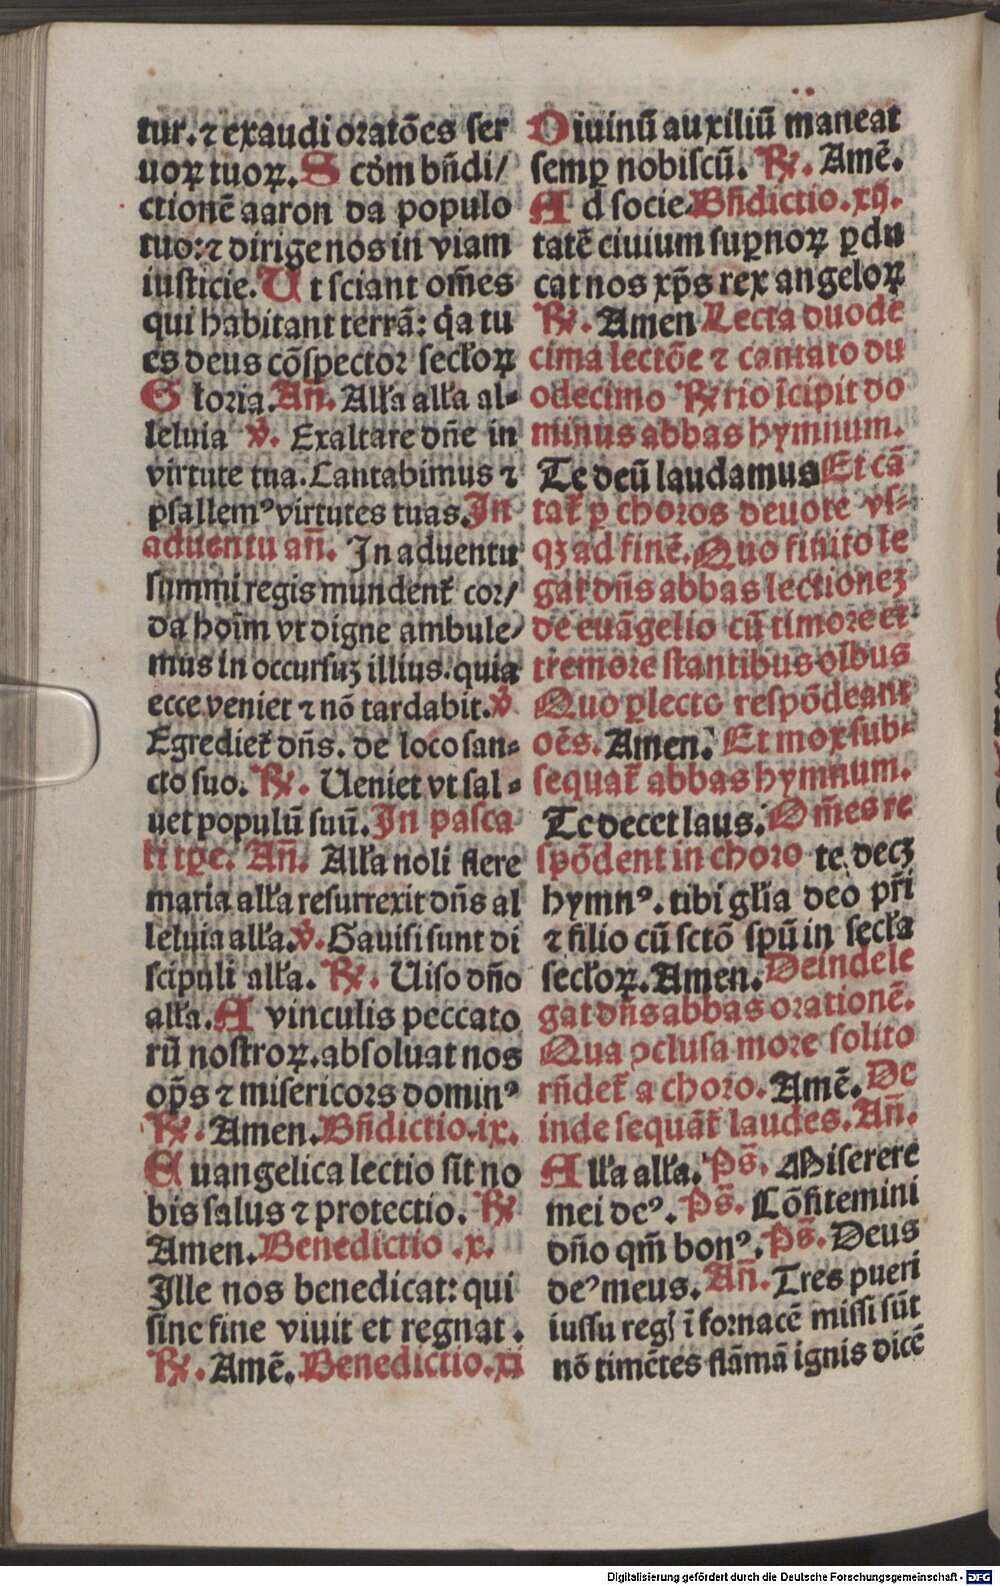 tur. ⁊ exaudi oratōes ser
uoꝝ tuoꝝ. S cōm bn̄di/
ctionē aaron da populo
tuo: ⁊ dirige nos in viam
iusticie. U t sciant om̄es
qui habitant terrā: q̇a tu
es deus cōspector secĺoꝝ
G ĺoria. An̄. Alĺa alĺa al⸗
leluia ꝟ. Exaltare dn̄e in
virtute tua. Cantabimus ⁊
psallemꝰ virtutes tuas. In
aduentu an̄. In aduentu
summi regis mundent᷑ cor/
da hoīm vt digne ambule/
mus in occursuꝫ illius. quia
ecce veniet ⁊ nō tardabit. ꝟ
Egrediet᷑ dn̄s. de loco san⸗
cto suo. ℟. Ueniet vt sal⸗
uet populū suū. In pasca
li tꝑe. An̄. Alĺa noli flere
maria alĺa resurrexit dn̄s al
leluia alĺa. ꝟ. Gauisi sunt di
scipuli alĺa. ℟. Uiso dn̄o
alĺa. A vinculis peccato
rū nostroꝝ. absoluat nos
op̄s ⁊ misericors dominꝰ
℟. Amen. Bn̄dictio .ix.
E uangelica lectio sit no
bis salus ⁊ protectio. ℟
Amen. Benedictio .x.
Ille nos benedicat: qui
sine fine viuit et regnat.
℟. Amē. Benedictio .xi
D iuinū auxiliū maneat
semꝑ nobiscū. ℟. Amē.
A d socie⸗ Bn̄dictio. xij.
tatē ciuium suꝑnoꝝ ꝑdu
cat nos xp̄s rex angeloꝝ
℟. Amen Lecta duode
cima lectōe ⁊ cantato du
odecimo ℟rio īcipit do
minus abbas hymnum.
Te deū laudamus Et cā
tat᷑ ꝑ choros deuote vs⸗
qꝫ ad finē. Quo finito le
gat dn̄s abbas lectioneꝫ
de euāgelio cū timore et
tremore stantibus oībus
Quo ꝑlecto respōdeant
oēs. Amen. Et mox sub⸗
sequat᷑ abbas hymnum.
Te decet laus. Om̄es re
spōdent in choro te decꝫ
hymnꝰ. tibi gĺia deo pr̄i
⁊ filio cū sctō spū in secĺa
secĺoꝝ. Amen. Deinde le
gat dn̄s abbas orationē.
Qua ꝯclusa more solito
rn̄det᷑ a choro. Amē. De
inde sequāt᷑ laudes. An̄.
A lĺa alĺa. Ps̄. Miserere
mei deꝰ. Ps̄. Cōfitemini
dn̄o qm̄ bonꝰ. Ps̄. Deus
deꝰ meus. An̄. Tres pueri
iussu regꝭ ī fornacē missi sūt
nō timētes flāmā ignis dicē
Digitalisierung gefördert durch die Deutsche Forschungsgemeinschaft - DFG